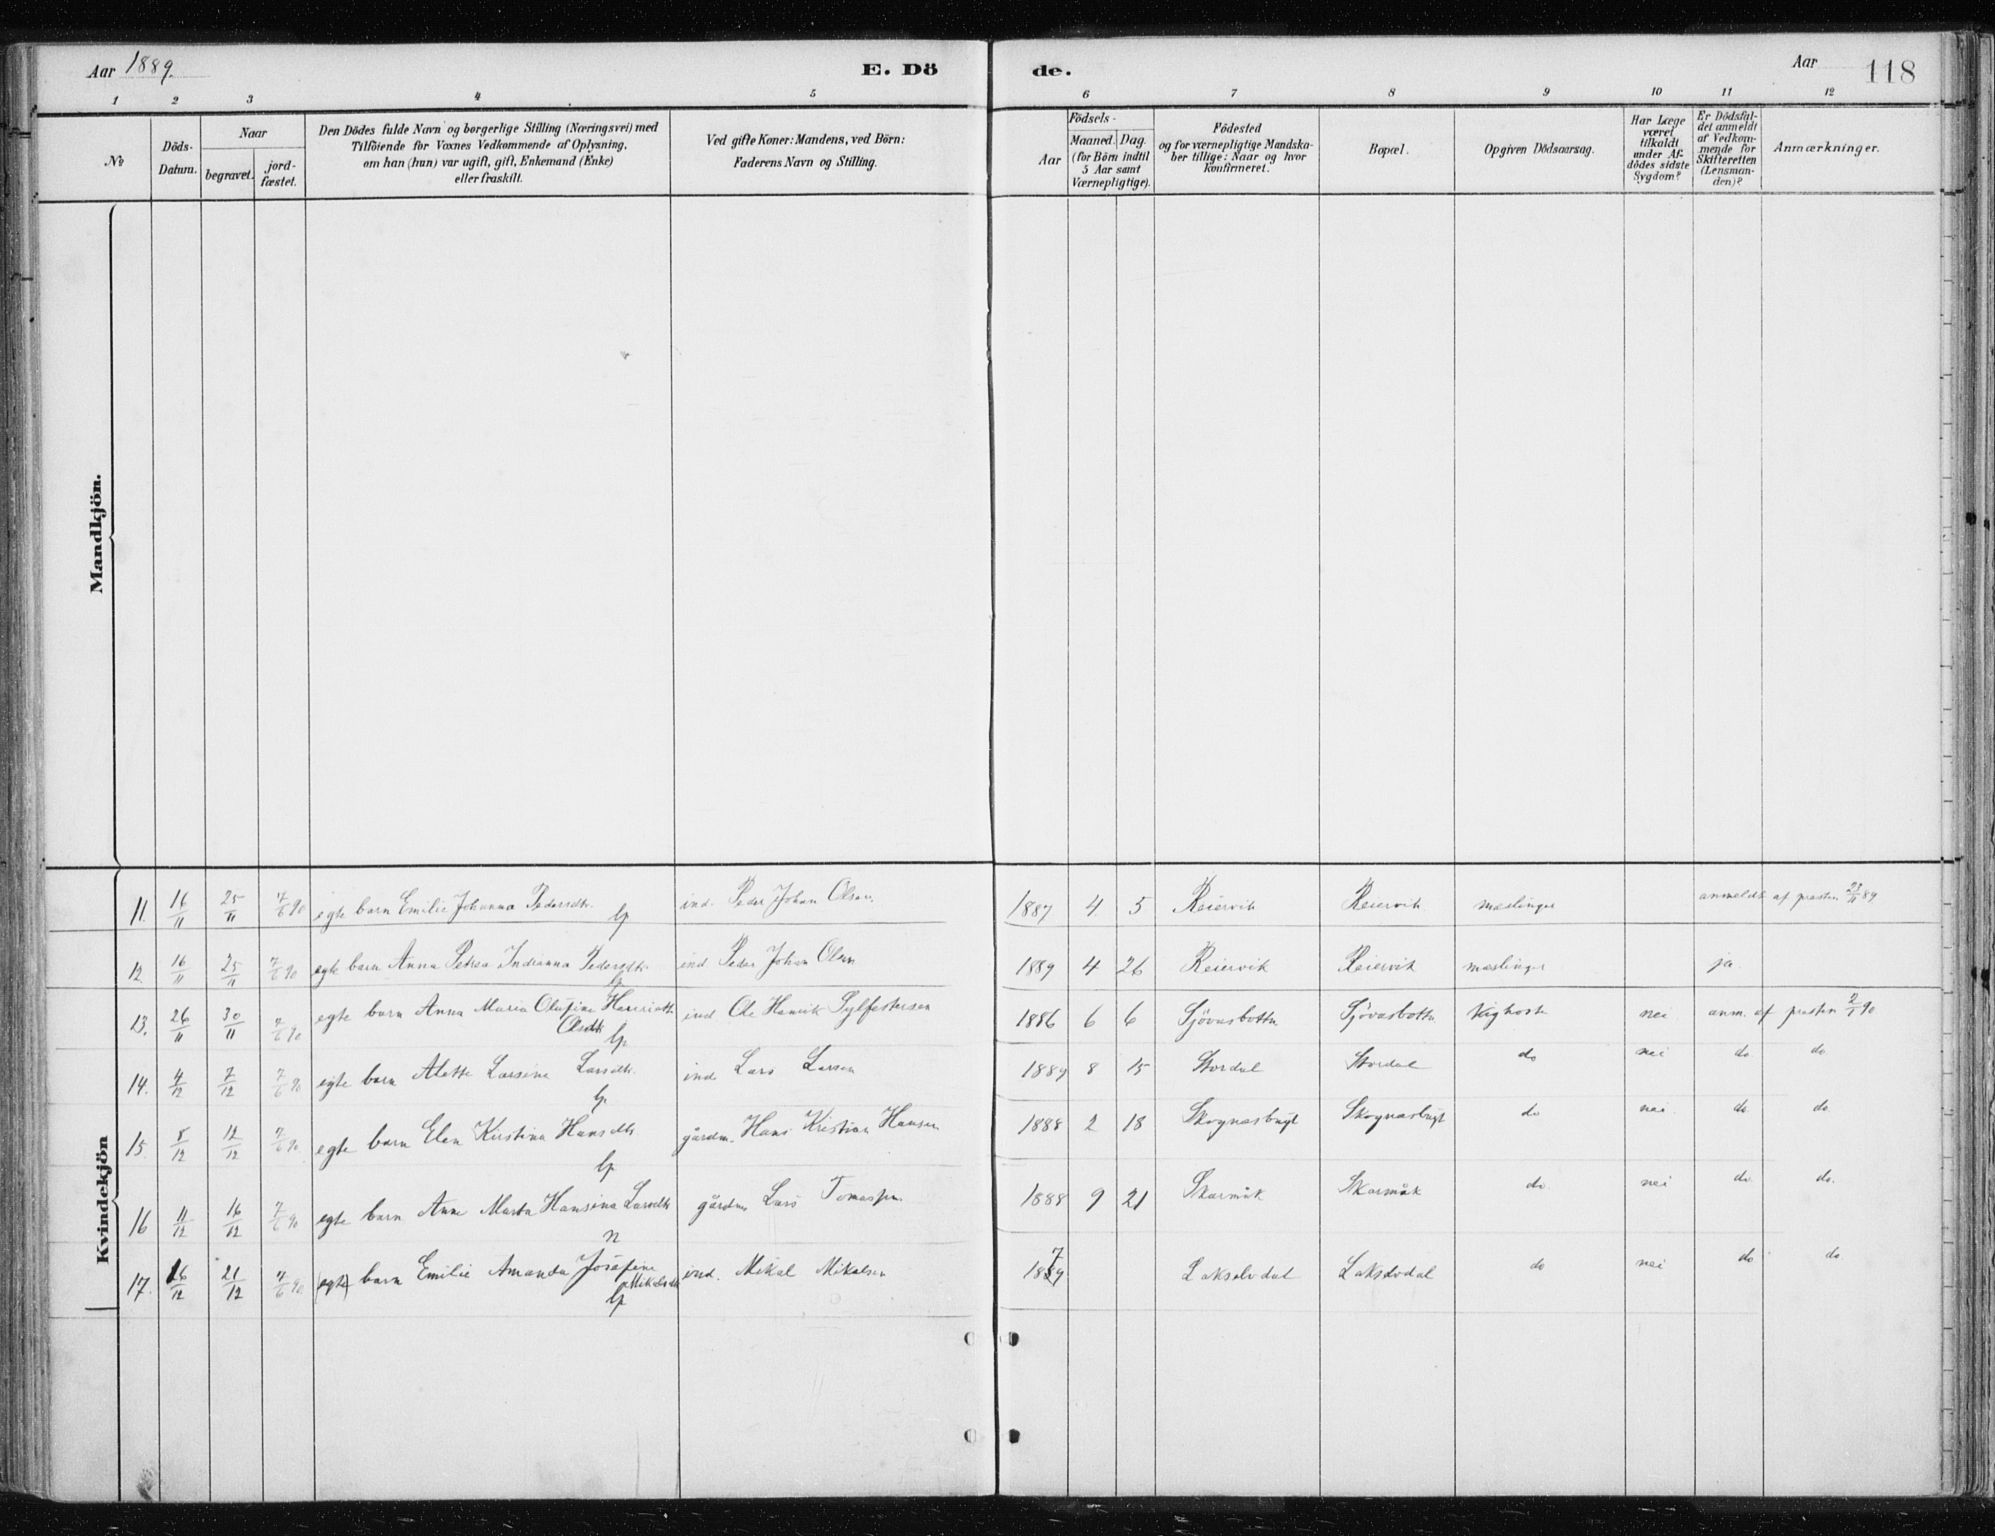 Aar 1889. E. Dö de. Aar 118
1 2 3 4 5 6 7 8 9 10 11 12
No
Döds-Datum.
Naar
begravet.
jord-fæstet.
Den Dödes fulde Navn og borgerlige Stilling (Næringsvei) med
Tilföiende for Voxnes Vedkommende af Oplysning,
om han (hun) var ugift, gift, Enkemand (Enke)
eller fraskilt.
Ved gifte Koner: Mandens, ved Börn:
Faderens Navn og Stilling.
Födsels-
Aar
Maaned. Dag.
(for Börn indtil
5 Aar samt
Værnepligtige).
Födested
og for værnepligtige Mandska-
ber tillige: Naar og hvor
konfirmeret.
Bopæl.
Opgiven Dödsaarsag.
Har Læge
været
tilkaldt
under Af-
dödes sidste
Sygdom?
Er Dödsfal-
det anmeldt
af Vedkom-
mende for
Skifteretten
(Lensman-
den)?
Anmærkninger.
Mandkjön.
Kvindekjön
11. 16/11 25/11 7/6 90 egte barn Emilie Johanna Pedersdtr. ind. Peder Johan Olsen. 1887 4 5 Reiervik Reiervik meslinger anmeldt af presten 23/11 89
12. 16/11 25/11 7/6 90 egte barn Anna Petrea Indianna Pedersdtr. ind Peder Johan Olsen 1889 4 26 Reiervik Reiervik meslinger ja
13. 26/11 30/11 7/6 90 egte barn Anna Maria Olufine Henriette ind Ole Henrik Sylfestersen 1886 6 6 Sjövasbotten Sjövasbotten kighoste nei anm. af presten 2/1 90
Olsdtr
14. 4/12 7/12 7/6 90 egte barn Alette Larsine Larsdtr. ind. Lars Larsen 1889 8 15 Stordal Stordal do nei do do.
15. 8/12 12/12 7/6 90 egte barn Elen Kirstina Hansdtr. gårdm. Hans Kristian Hansen 1888 2 18 Skognasbugt Skognasbugt do nei do. do.
16 11/12 16/12 7/6 90 egte barn Anne Marta Hansina Larsdtr gårdm Lars Tomassen. 1888 9 21 Skarmåk Skarmåk do. nei do. do.
n
17. 16/12 21/12 7/6 90 (egte) barn Emilie Amanda Josefine ind. Mikal Mikalsen 1889 7 Lakselvdal Lakselvdal do nei do do.
Mikalsdtr